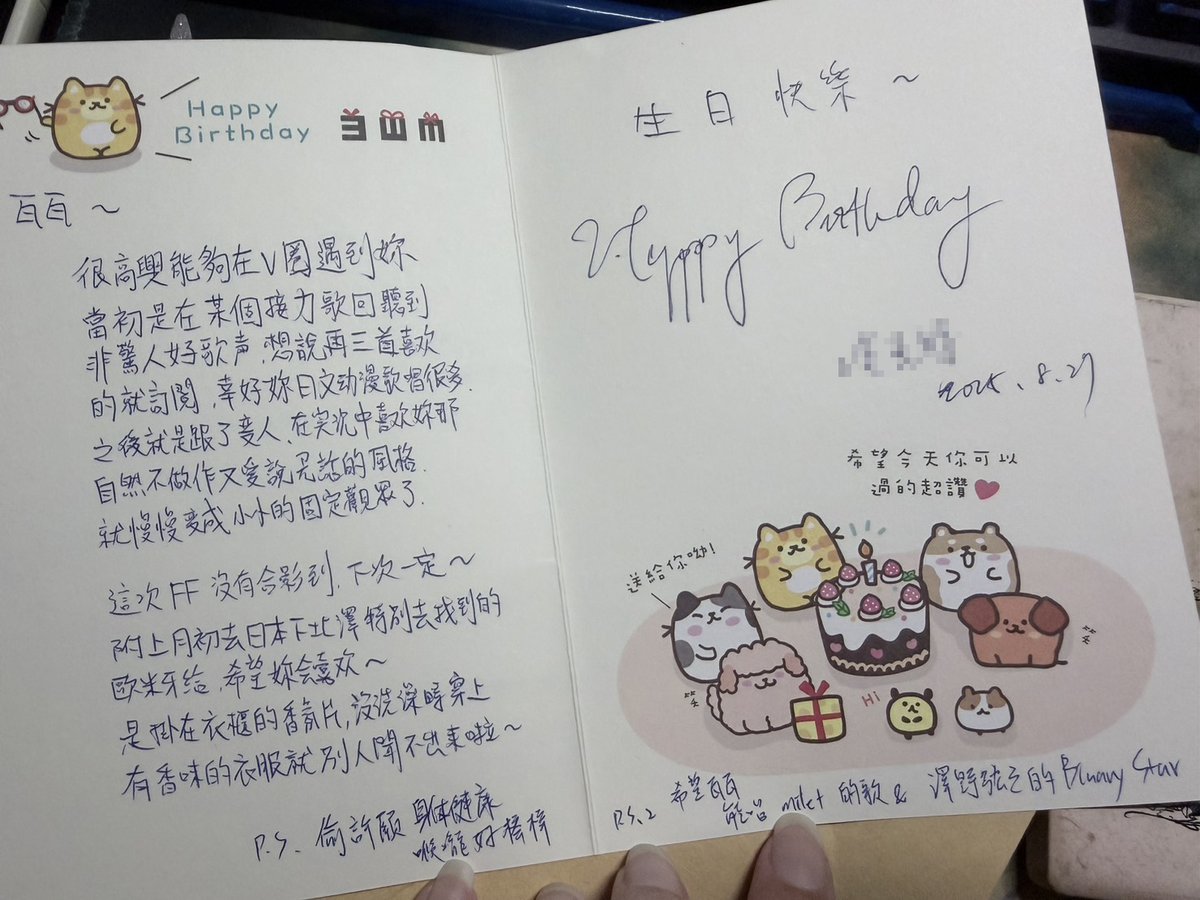 Happy
Birthday
瓦瓦～
很高興能夠在V圈遇到妳
當初是在某個接力歌回聽到
非驚人好歌声,想說再三首喜歡
的就訂閱,幸好妳日文动漫歌唱很多.
之後就是跟了変人,在実況中喜欢妳那
自然不做作又愛說
的風格.
就慢慢变成小小的固定觀眾了.
這次FF沒有合影到,下次一定～
附上月初去日本下北澤特別去找到的
欧米牙給,希望妳会喜欢～
是掛在衣櫃的香氛片,沒洗澡時穿上
有香味的衣服就別人聞不出來啦～
P.S. 偷許願 身体健康
喉嚨好棒棒
生日快樂～
Happy Birthday
2025.8.27
希望今天你可以
過的超讚
送給你呦!
笑
笑
Hi
P.S.2 希望瓦瓦
能唱 milet 的歌 & 澤野弘之的 Bluary Star